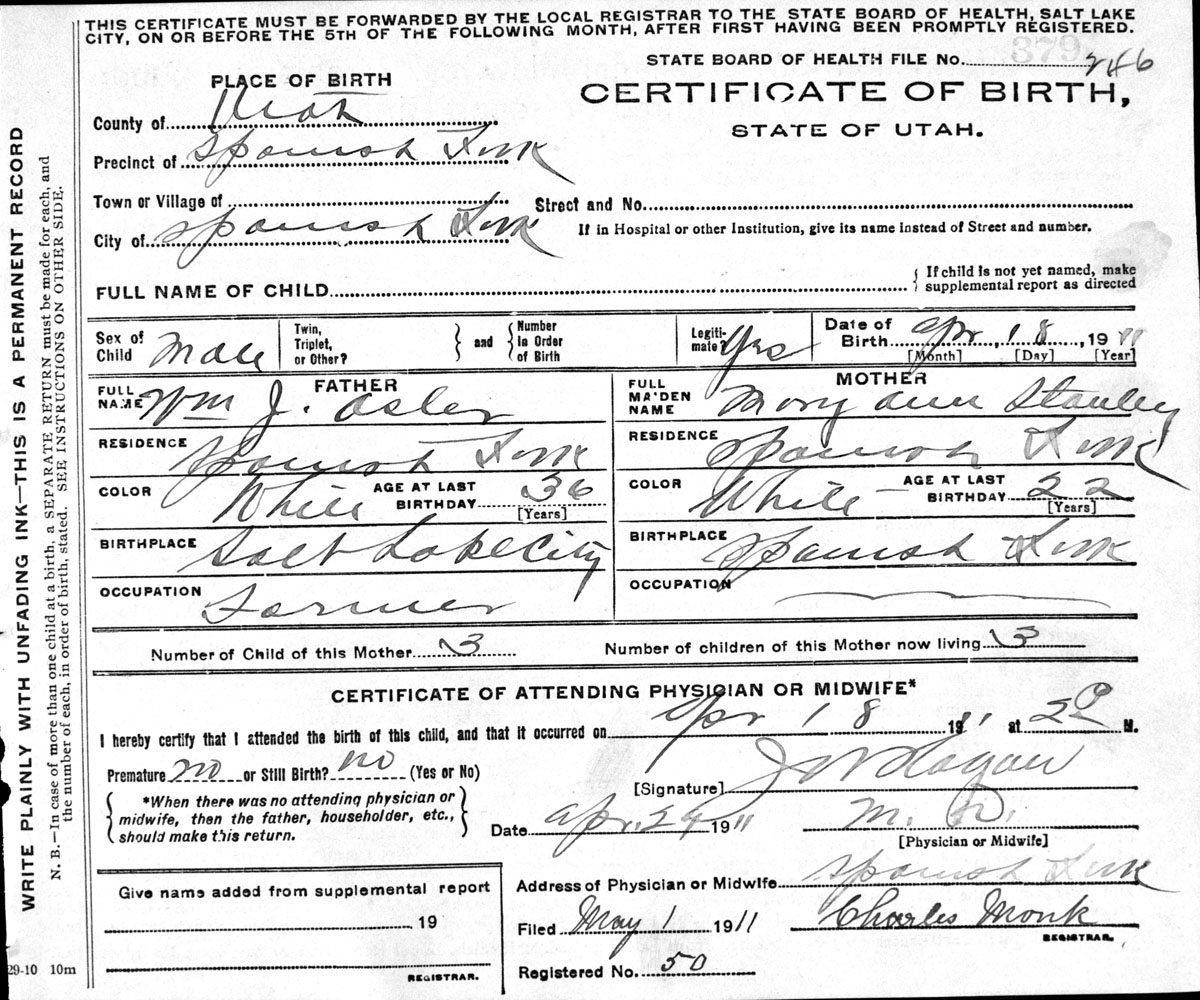 THIS CERTIFICATE MUST BE FORWARDED BY THE LOCAL REGISTRAR TO THE STATE BOARD OF HEALTH, SALT LAKE
CITY, ON OR BEFORE THE 5TH OF THE FOLLOWING MONTH, AFTER FIRST HAVING BEEN PROMPTLY REGISTERED.
WRITE PLAINLY WITH UNFADING INK—THIS IS A PERMANENT RECORD
N. B.—In case of more than one child at a birth, a SEPARATE RETURN must be made for each, and
the number of each, in order of birth, stated. SEE INSTRUCTIONS ON OTHER SIDE.
STATE BOARD OF HEALTH FILE No. 246
PLACE OF BIRTH
CERTIFICATE OF BIRTH,
STATE OF UTAH.
County of Utah
Precinct of Spanish Fork
Town or Village of
Street and No.
City of Spanish Fork
If in Hospital or other Institution, give its name instead of Street and number.
FULL NAME OF CHILD
{ If child is not yet named, make
supplemental report as directed
Sex of Child Male
Twin, Triplet, or Other? } and { Number in Order of Birth
Legitimate? Yes
Date of Birth Apr, 18, 1911
[Month] [Day] [Year]
FATHER
FULL NAME Wm J. Osler
RESIDENCE Spanish Fork
COLOR White AGE AT LAST BIRTHDAY 36
[Years]
BIRTHPLACE Salt Lake City
OCCUPATION Farmer
MOTHER
FULL MAIDEN NAME Mary Ann Stanley
RESIDENCE Spanish Fork
COLOR White AGE AT LAST BIRTHDAY 22
[Years]
BIRTHPLACE Spanish Fork
OCCUPATION
Number of Child of this Mother 3
Number of children of this Mother now living 3
CERTIFICATE OF ATTENDING PHYSICIAN OR MIDWIFE*
I hereby certify that I attended the birth of this child, and that it occurred on Apr 18 1911 at 2 P M.
Premature no or Still Birth? no (Yes or No)
[Signature]
{ *When there was no attending physician or
midwife, then the father, householder, etc.,
should make this return. }
Date Apr. 29 1911 M. D.
[Physician or Midwife]
Give name added from supplemental report
19
REGISTRAR.
Address of Physician or Midwife Spanish Fork
Filed May 1 1911 Charles Monk
REGISTRAR.
Registered No. 50
29-10 10m